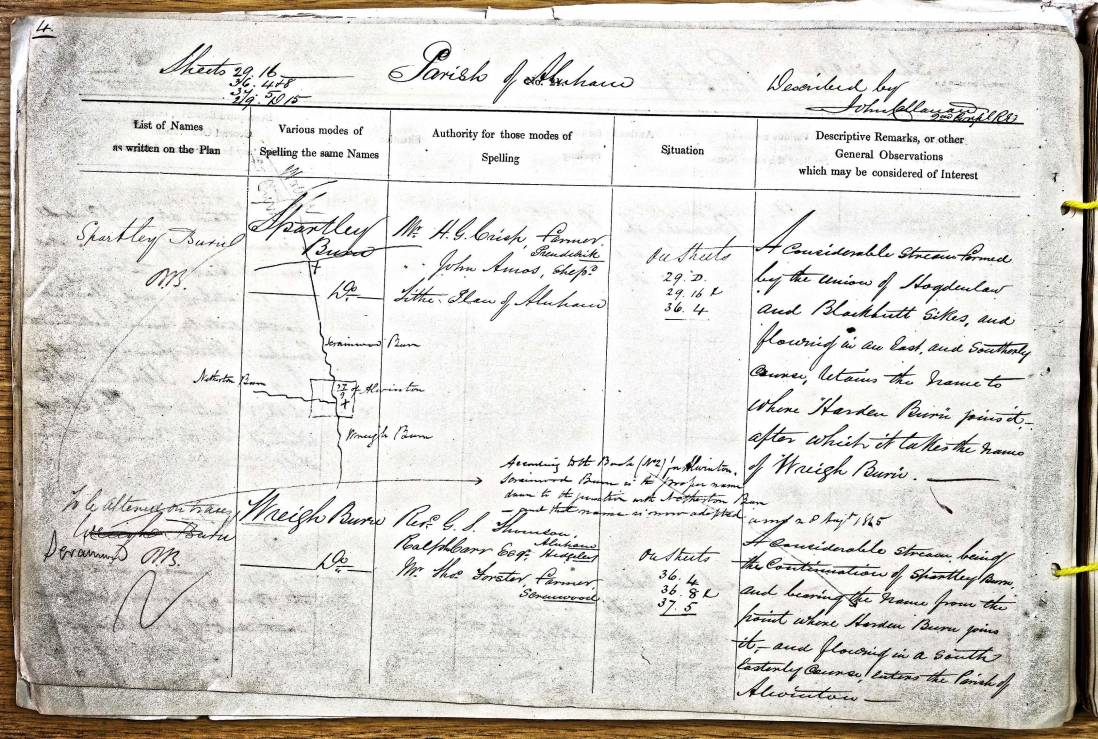 4
Sheets 29.16
36. 4 & 8
37. 5
29. D 15
Parish of Alnham
Described by
John Callanan
2nd Corpl. R.E.
List of Names
as written on the Plan
Various modes of
Spelling the same Names
Authority for those modes of
Spelling
Situation
Descriptive Remarks, or other
General Observations
which may be considered of Interest
Spartley Burn
Spartley
Burn
Mr. H.G. Crisp, Farmer
Prendwick
" John Amos, Shepd.
Do
Tithe Plan of Alnham
On Sheets
29. D.
29. 16
36. 4
A Considerable Stream formed
by the union of Hogdenlaw
and Blackbutt Sikes, and
flowing in an East, and Southerly
Course, retains the Name to
where Harden Burn joins it,
after which it takes the Name
of Wreigh Burn.
Scrainwood Burn
Netherton Burn
of Alwinton
Wreigh Burn
According to the Book (No 2) for Alwinton.
Scrainwood Burn is the proper name
down to the junction with Netherton Burn
- and that name is now adopted
2d Augt 1865
To be altered on traces
Wreigh Burn
Scrainwood
Wreigh Burn
Revd. G. S. Thomson,
Alnham
Ralph Carr Esqr. Hedgeley
Do
Mr. Thos. Forster, Farmer,
Scrainwood
On Sheets
36. 4
36. 8
37. 5
A Considerable Stream being
the Continuation of Spartley Burn,
and bearing the Name from the
point where Harden Burn joins
it, and flowing in a South
Easterly Course, enters the Parish of
Alwinton